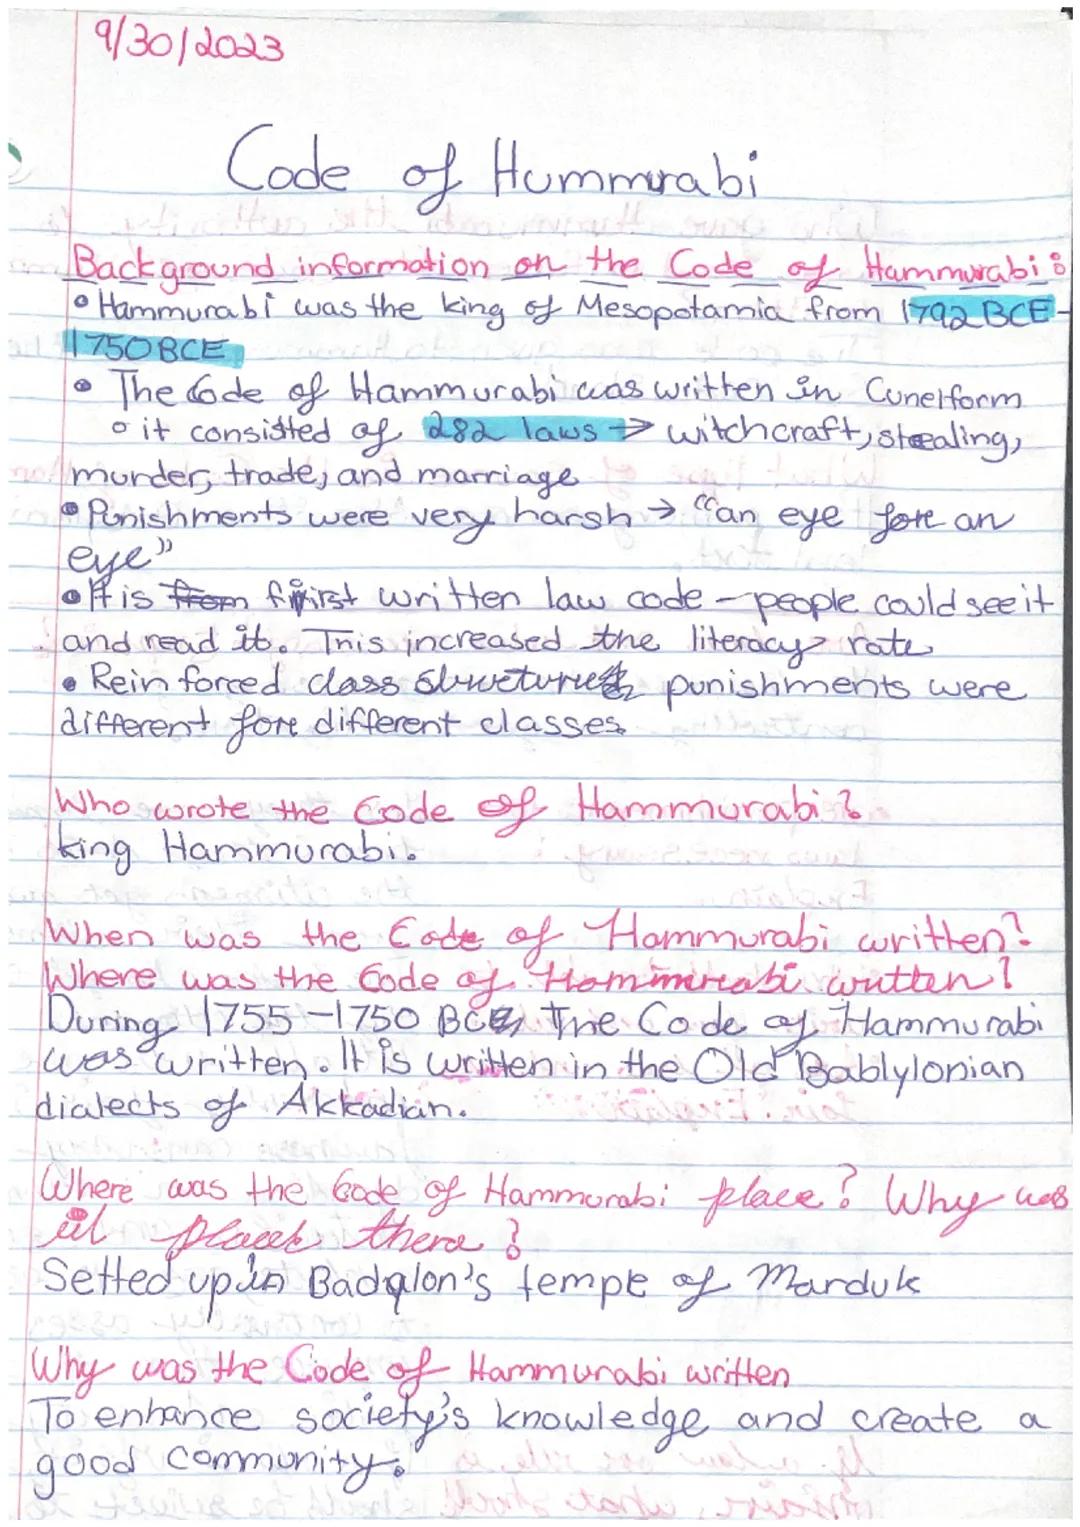 9/30/2023
Code of Hummurabi
Background information on the Code of Hammurabi:
• Hammurabi was the king of Mesopotamia from 1792 BCE-
1750 BCE
• The Code of Hammurabi was written in Cuneiform
◦ it consisted of 282 laws → witchcraft, stealing,
murder, trade, and marriage
• Punishments were very harsh → "an eye fore an
eye"
• It is from first written law code - people could see it
and read it. This increased the literacy rate
• Reinforced class structures punishments were
different fore different classes.
Who wrote the Code of Hammurabi?
king Hammurabi.
When was the Code of Hammurabi written?
Where was the Code of Hammurabi written?
During 1755-1750 BCE, the Code of Hammurabi
was written. It is written in the Old Bablylonian
dialects of Akkadian.
Where was the Code of Hammurabi place? Why was
it placed there?
Setted up in Badylon's temple of Marduk
Why was the Code of Hammurabi written
To enhance society's knowledge and create a
good community.